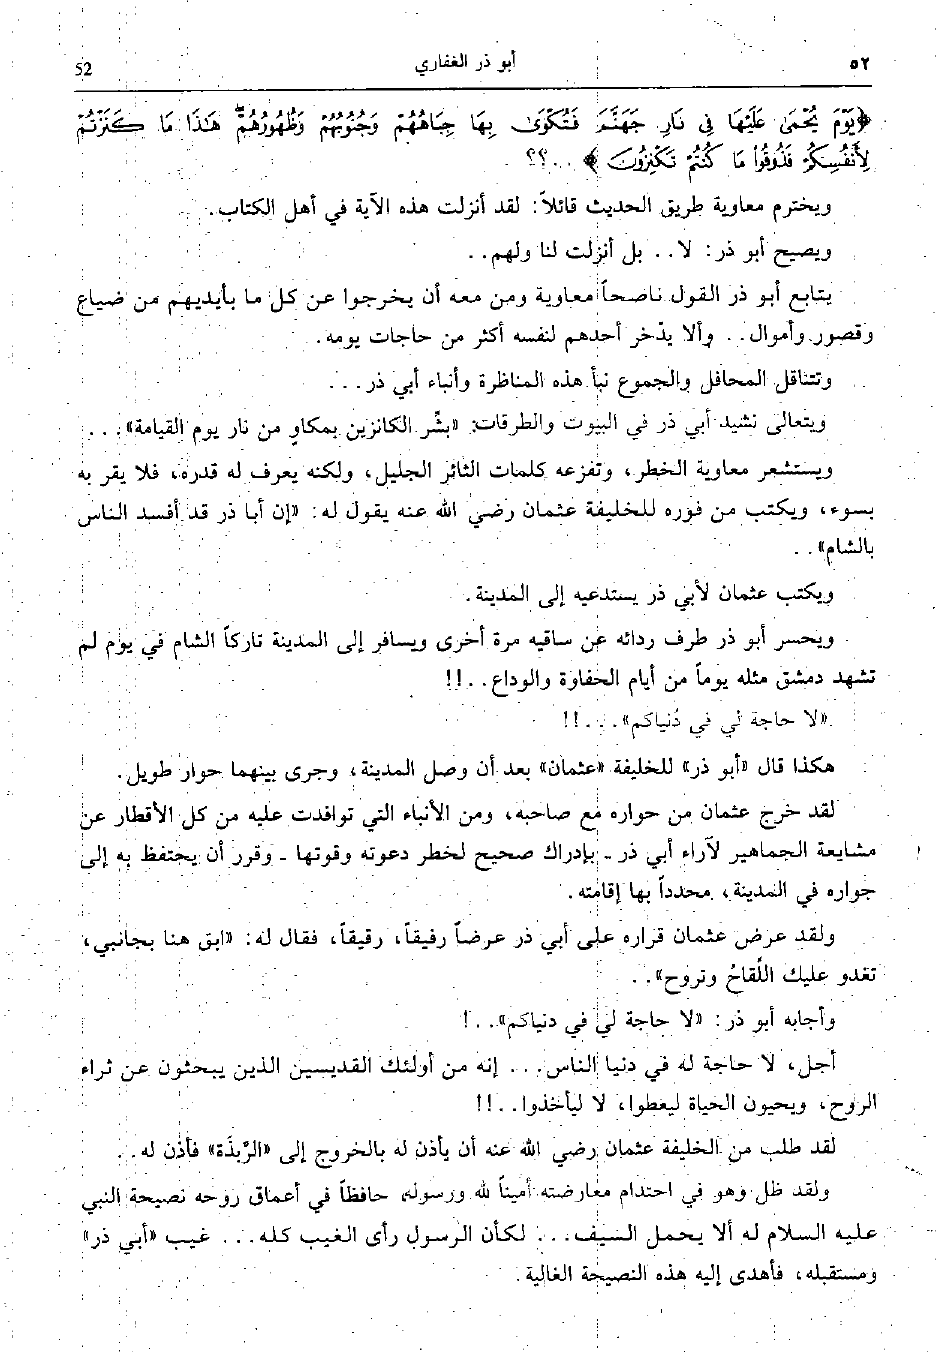 ٥٢ أبو ذر الغفاري 52
﴿يَوْمَ يُحْمَىٰ عَلَيْهَا فِي نَارِ جَهَنَّمَ فَتُكْوَىٰ بِهَا جِبَاهُهُمْ وَجُنُوبُهُمْ وَظُهُورُهُمْ ۖ هَٰذَا مَا كَنَزْتُمْ
لِأَنْفُسِكُمْ فَذُوقُوا مَا كُنْتُمْ تَكْنِزُونَ﴾ . . .؟؟
ويخترم معاوية طريق الحديث قائلاً: لقد أنزلت هذه الآية في أهل الكتاب.
ويصيح أبو ذر: لا. . بل أنزلت لنا ولهم. .
يتابع أبو ذر القول ناصحاً معاوية ومن معه أن يخرجوا عن كل ما بأيديهم من ضياع
وقصور وأموال. . وألا يدّخر أحدهم لنفسه أكثر من حاجات يومه.
وتتناقل المحافل والجموع نبأ هذه المناظرة وأنباء أبي ذر. . .
ويتعالى نشيد أبي ذر في البيوت والطرقات: «بشّر الكانزين بمكاوٍ من نار يوم القيامة». . .
ويستشعر معاوية الخطر، وتفزعه كلمات الثائر الجليل، ولكنه يعرف له قدره، فلا يقر به
بسوء، ويكتب من فوره للخليفة عثمان رضي الله عنه يقول له: «إن أبا ذر قد أفسد الناس
بالشام». .
ويكتب عثمان لأبي ذر يستدعيه إلى المدينة.
ويحسر أبو ذر طرف ردائه عن ساقيه مرة أخرى ويسافر إلى المدينة تاركاً الشام في يوم لم
تشهد دمشق مثله يوماً من أيام الحفاوة والوداع. . !!
«لا حاجة لي في دُنياكم». . . !!
هكذا قال «أبو ذر» للخليفة «عثمان» بعد أن وصل المدينة، وجرى بينهما حوار طويل.
لقد خرج عثمان من حواره مع صاحبه، ومن الأنباء التي توافدت عليه من كل الأقطار عن
مشايعة الجماهير لآراء أبي ذر ـ بإدراك صحيح لخطر دعوته وقوتها ـ وقرر أن يحتفظ به إلى
جواره في المدينة، محدداً بها إقامته.
ولقد عرض عثمان قراره على أبي ذر عرضاً رفيقاً، رقيقاً، فقال له: «ابق هنا بجانبي،
تغدو عليك اللِّقاحُ وتروح». .
وأجابه أبو ذر: «لا حاجة لي في دنياكم». . !
أجل، لا حاجة له في دنيا الناس. . . إنه من أولئك القديسين الذين يبحثون عن ثراء
الروح، ويحيون الحياة ليعطوا، لا ليأخذوا. . !!
لقد طلب من الخليفة عثمان رضي الله عنه أن يأذن له بالخروج إلى «الرَّبذَة» فأذن له. .
ولقد ظل وهو في احتدام معارضته أميناً لله ورسوله، حافظاً في أعماق روحه نصيحة النبي
عليه السلام له ألا يحمل السيف. . . لكأن الرسول رأى الغيب كله. . . غيب «أبي ذر»
ومستقبله، فأهدى إليه هذه النصيحة الغالية.